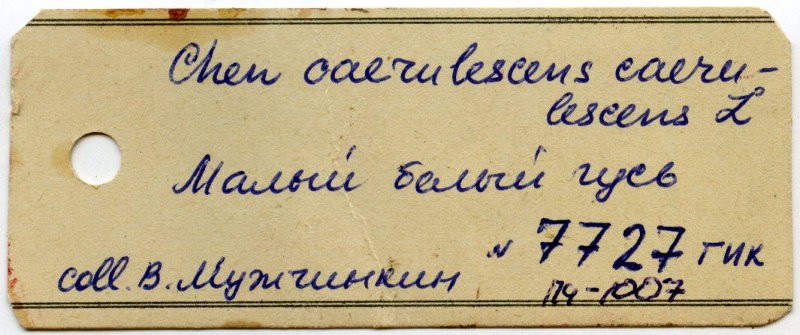 Chen caerulescens caeru-
lescens L
Малый белый гусь
coll. В. Мужчинкин
N 7727 ГИК
ПЧ-1007